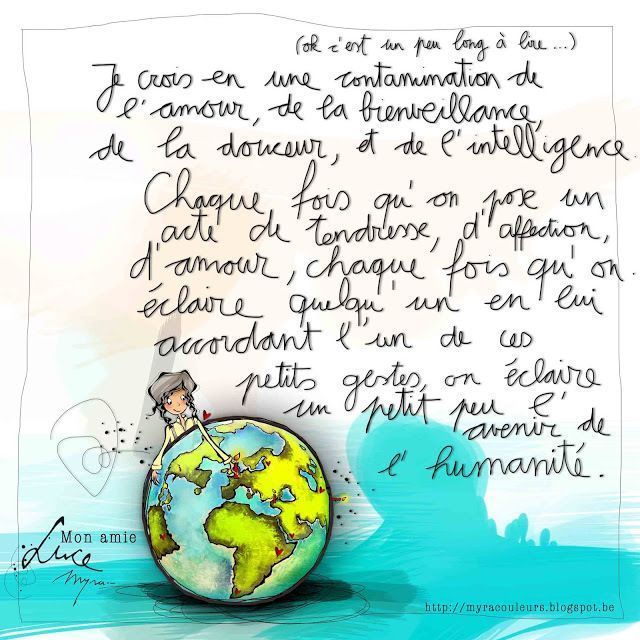 (ok c'est un peu long à lire ...)
Je crois en une contamination de
l'amour, de la bienveillance,
de la douceur, et de l'intelligence.
Chaque fois qu'on pose un
acte de tendresse, d'affection,
d'amour, chaque fois qu'on
éclaire quelqu'un en lui
accordant l'un de ces
petits gestes, on éclaire
un petit peu l'
avenir de
l'humanité.
Mon amie
Luce
Myra...
http://myracouleurs.blogspot.be